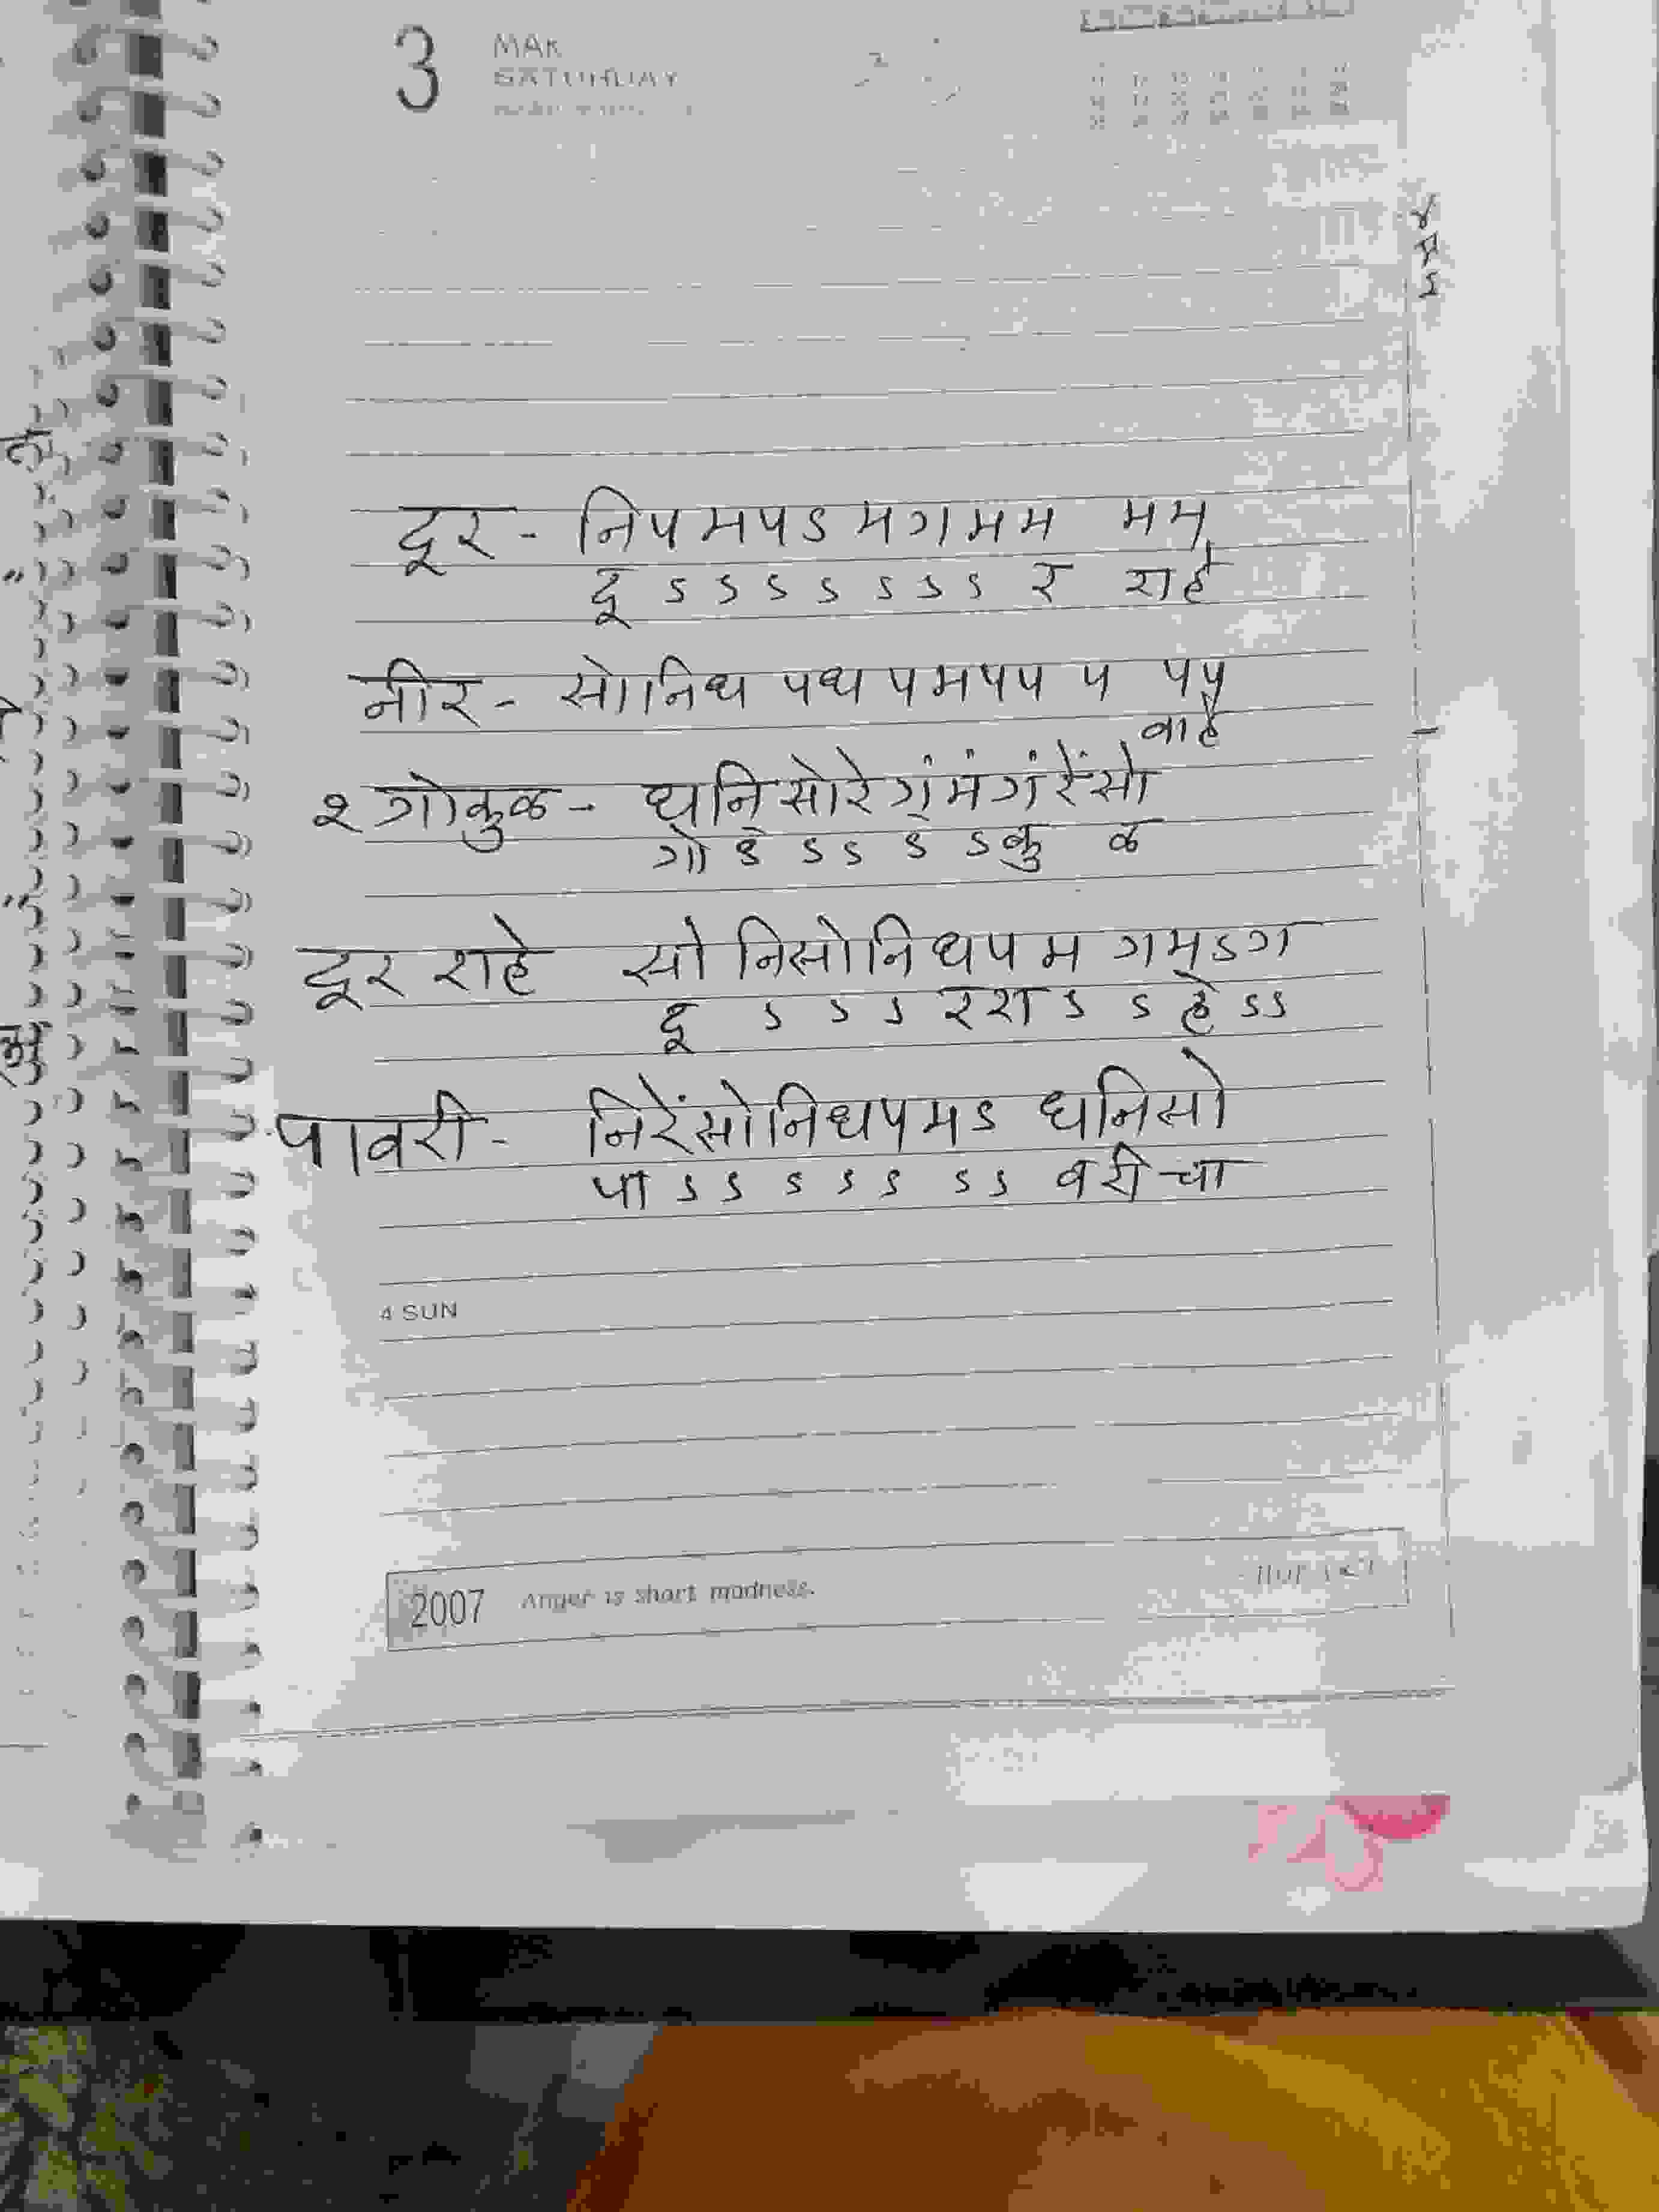 3 MAR
SATURDAY
दूर - निपमपऽ मगमम मम
दू ऽ ऽ ऽ ऽ ऽ ऽ ऽ र राहे
नीर - सोनिध पध पमपप प पप
वाहे
२ गोकुळ - धनिसोरेंगंमंगंरेंसो
गो ऽ ऽ ऽ ऽ ऽ कु ळ
दूर राहे सो निसोनिधपम गमऽग
दू ऽ ऽ ऽ र रा ऽ ऽ हे ऽ ऽ
पावरी - निरेंसोनिधपमऽ धनिसो
पा ऽ ऽ ऽ ऽ ऽ ऽ ऽ वरी चा
4 SUN
2007 Anger is short madness.